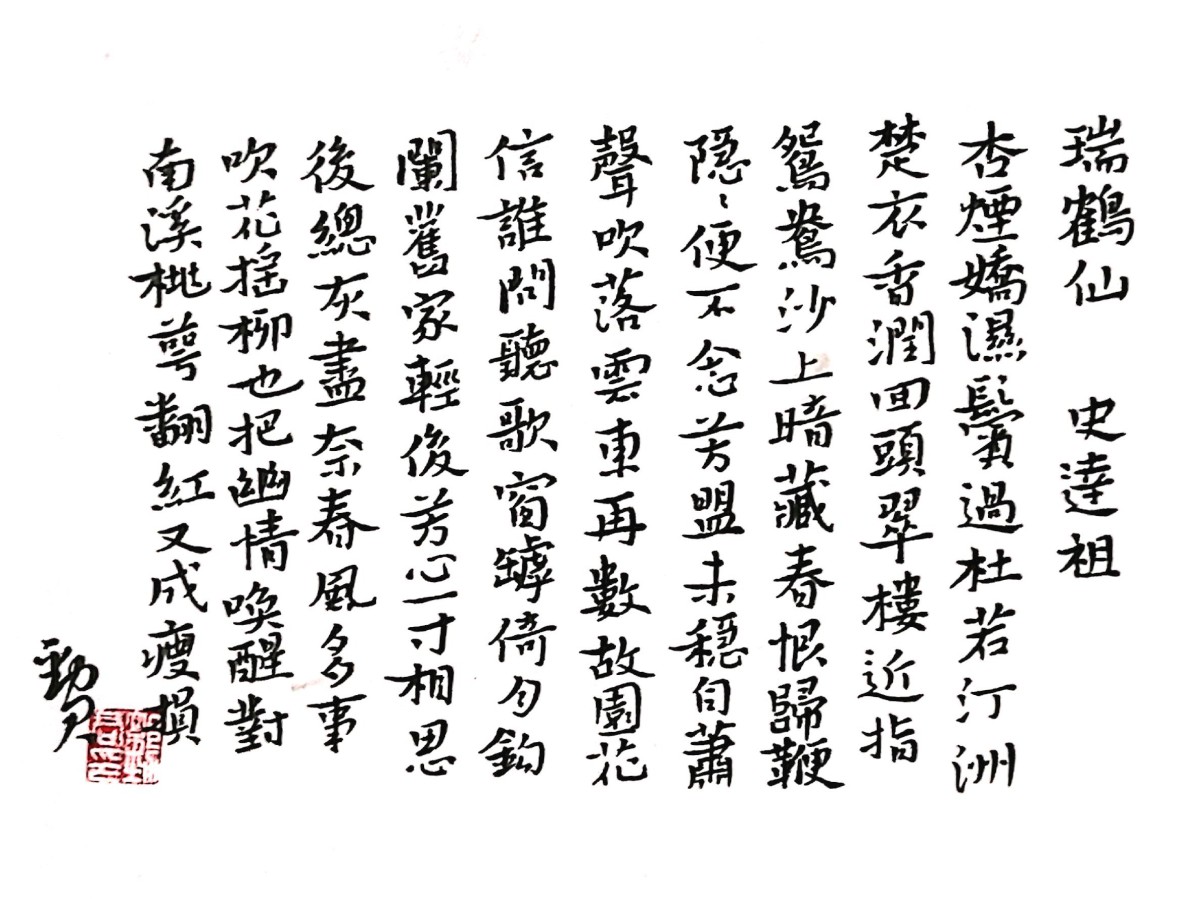 瑞鶴仙 史達祖
杏煙嬌濕鬢過杜若汀洲
楚衣香潤回頭翠樓近指
鴛鴦沙上暗藏春恨歸鞭
隱〻便不念芳盟未穩自蕭
聲吹落雲東再數故園花
信誰問聽歌窗罅倚勾鈎
闌舊家輕俊芳心一寸相思
後總灰盡奈春風多事
吹花搖柳也把幽情喚醒對
南溪桃萼翻紅又成瘦損